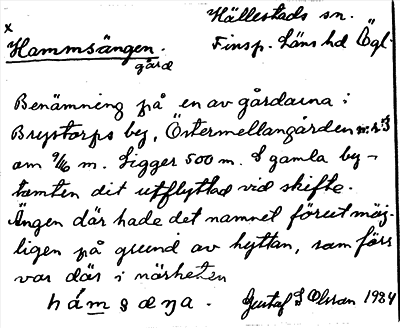 Hällestads sn.
x
Hammsängen.
Finsp. läns hd Ögl.
gård
Benämning på en av gårdarna i
Brystorps by, Östermellangården nr 3
om 9/16 m. Ligger 500 m. S gamla by-
tomten dit utflyttad vid skifte.
Ängen där hade det namnet förut möj-
ligen på grund av hyttan, som förr
var där i närheten
hámsæŋa.
Gustaf S Olsson 1984